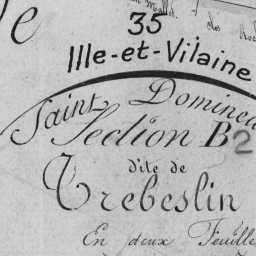 35
Ille-et-Vilaine
Saint Domineu
Section B2
dite de
Trebeslin
En deux Feuille